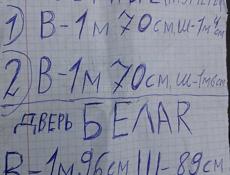 1) В-1м 70см, Ш-1м 4см
2) В-1м 70см, Ш-1м 6см
ДВЕРЬ БЕЛАЯ
В-1м 96см Ш-89см